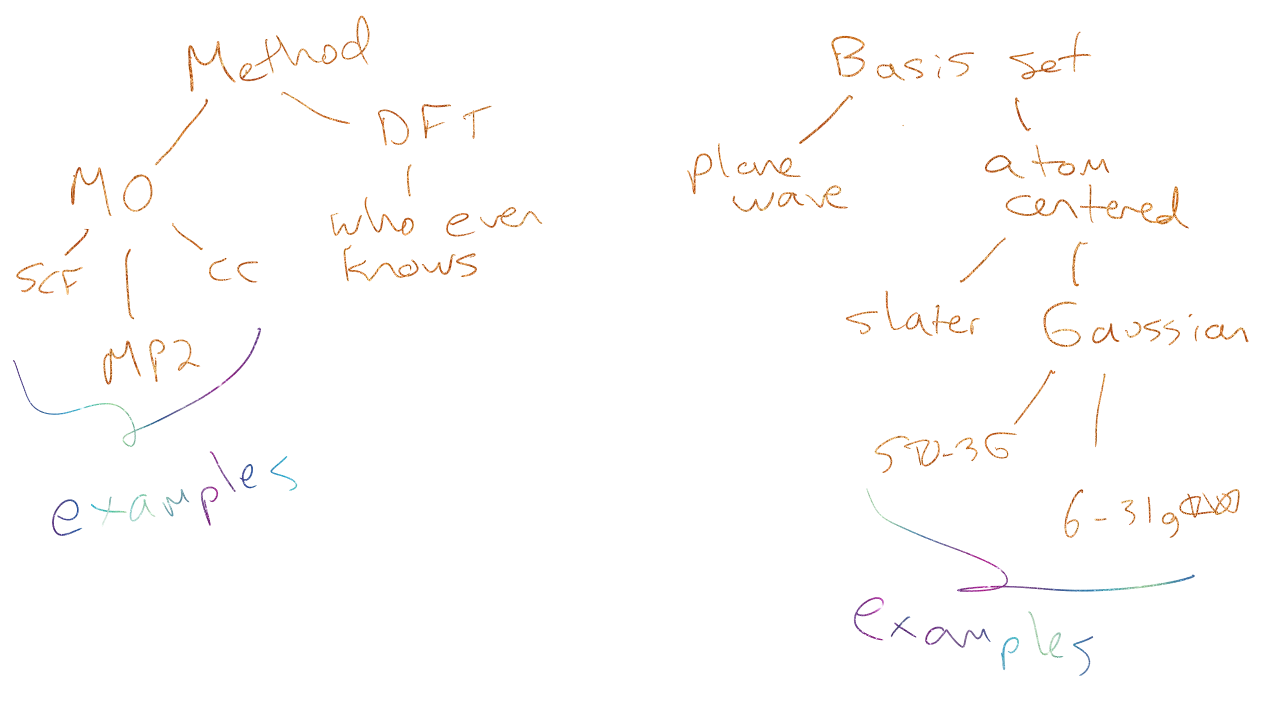 Method
MO
DFT
who even
knows
SCF
MP2
CC
examples
Basis set
plane
wave
atom
centered
slater
Gaussian
STO-3G
6-31g
examples